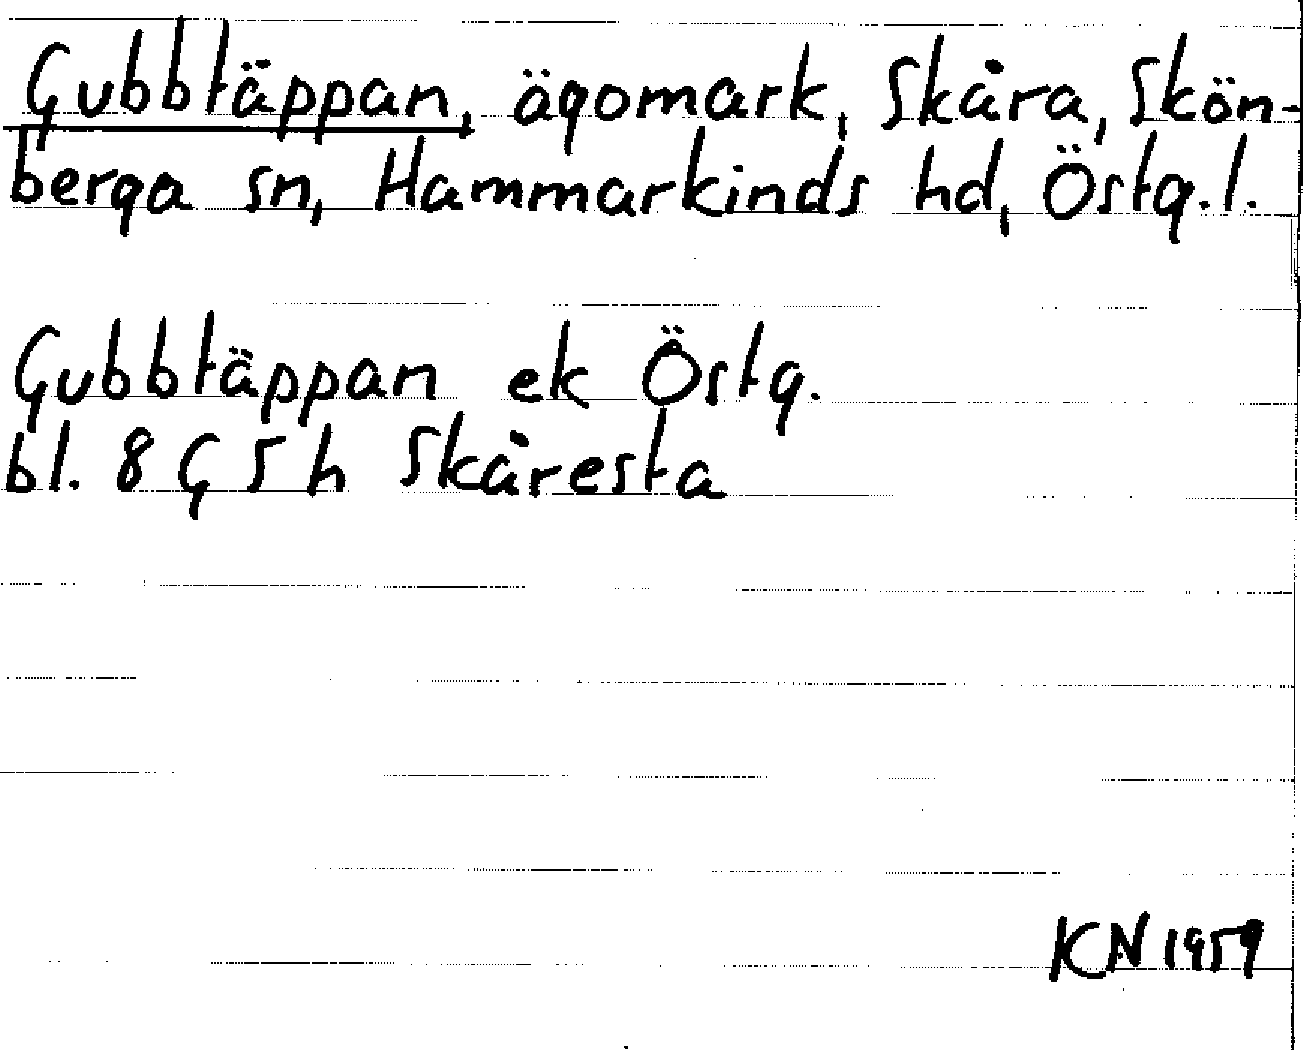 Gubbtäppan, ägomark, Skåra, Skön-
berga sn, Hammarkinds hd, Östg.l.
Gubbtäppan ek Östg.
bl. 8 G 5 h Skåresta
KN 1959